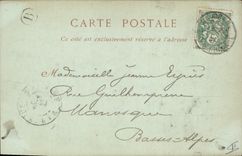 CARTE POSTALE
Ce côté est exclusivement réservé à l'adresse
Mademoiselle Jeanne Eyriès
Rue
Manosque
Basses-Alpes